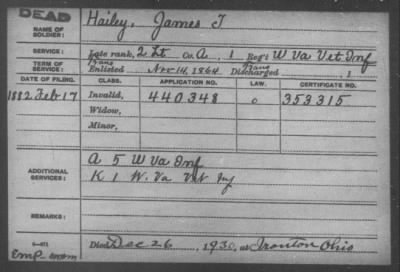 DEAD
NAME OF SOLDIER: Hailey, James T
SERVICE: Late rank, 2 Lt Co. A, 1 Reg't W Va Vet Inf
TERM OF SERVICE: Trans Enlisted Nov 14, 1864 Trans Discharged , 1
DATE OF FILING. CLASS. APPLICATION NO. LAW. CERTIFICATE NO.
1882 Feb 17 Invalid, 440348 o 353315
Widow,
Minor,
ADDITIONAL SERVICES: A 5 W Va Inf
K 1 W. Va Vet Inf
REMARKS:
Died Dec 26, 1930, at Ironton Ohio